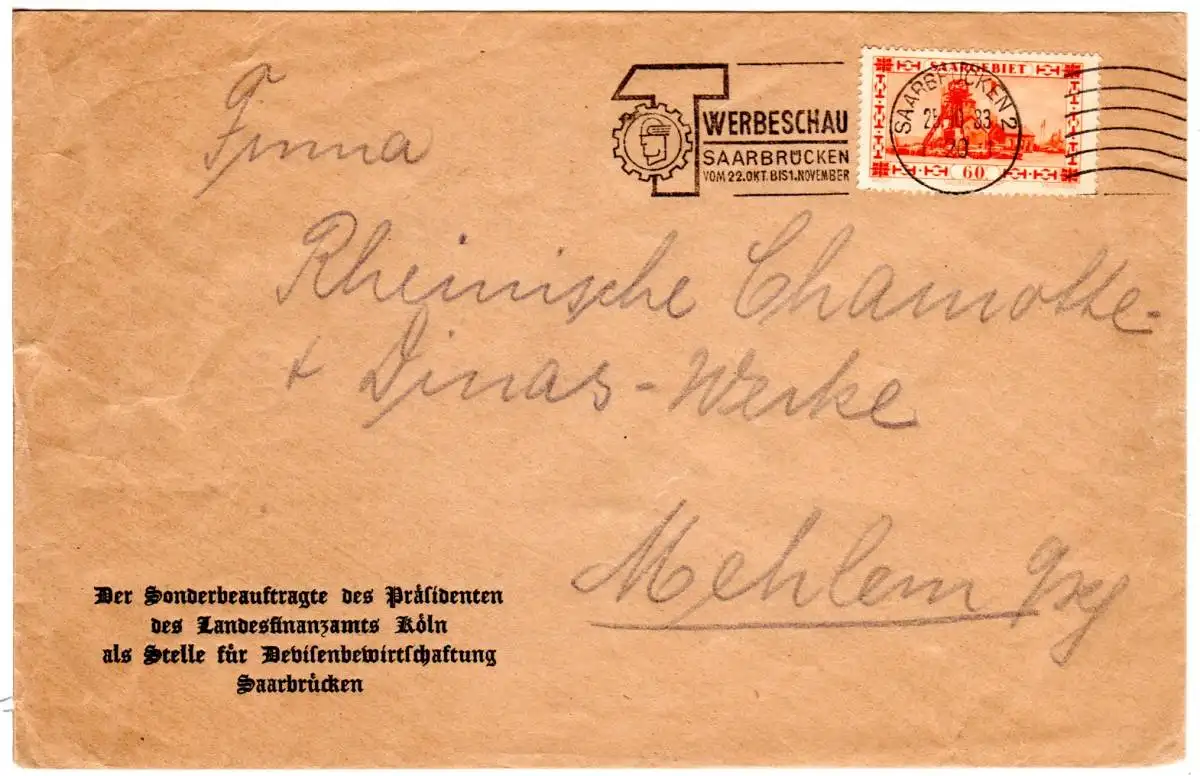 Firma
WERBESCHAU
SAARBRÜCKEN
VOM 22. OKT. BIS 1. NOVEMBER
SAARGEBIET
60
SAARBRÜCKEN 2
25.10.33
20
Rheinische Chamotte-
+ Dinas-Werke
Mehlem
Der Sonderbeauftragte des Präsidenten
des Landesfinanzamts Köln
als Stelle für Devisenbewirtschaftung
Saarbrücken